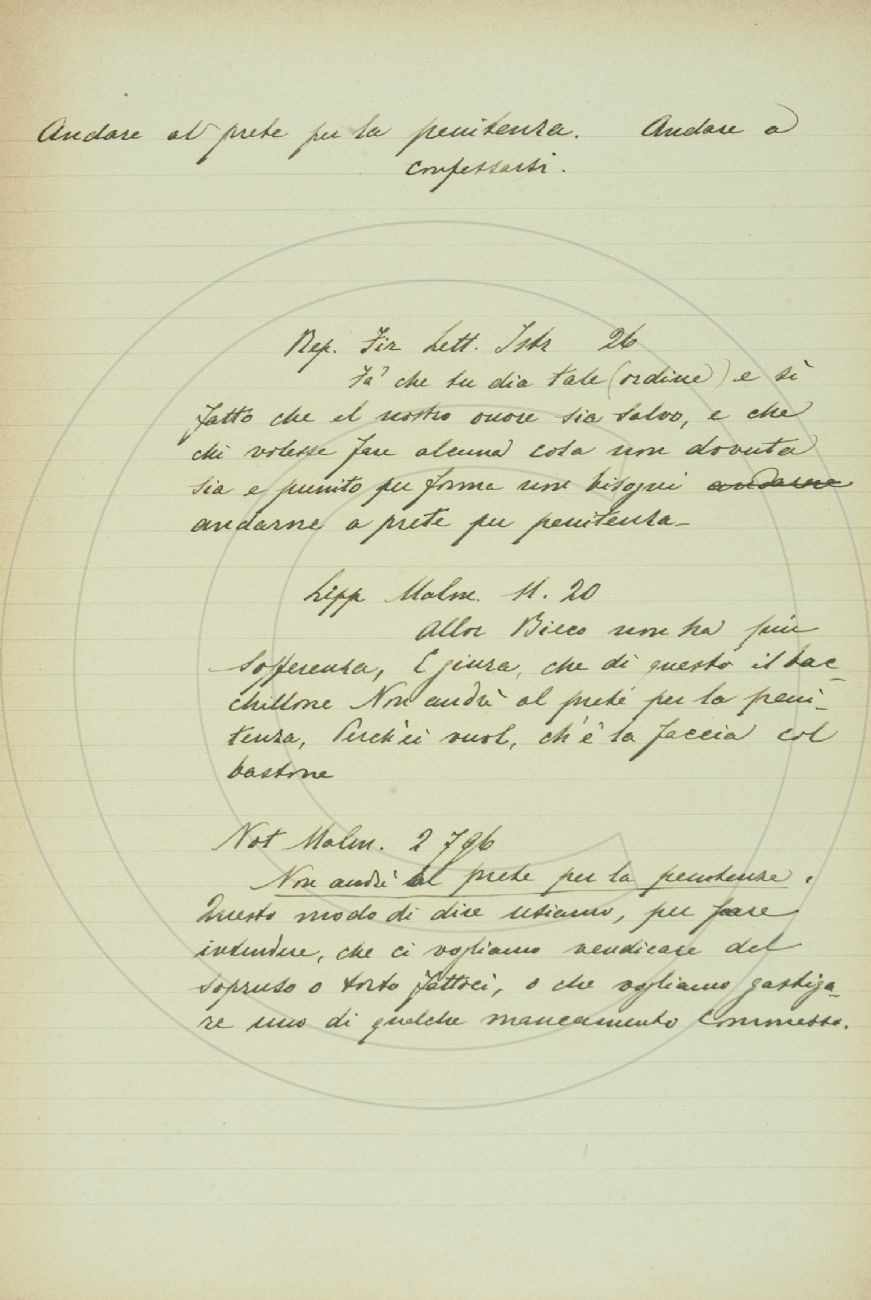 Andare al prete per la penitenza. Andare a
confessarsi.
Rep. Fir Lett. Istr 26
Fa' che tu dia tale (ordine) e sì
fatto che el nostro onore sia salvo, e che
chi volesse fare alcuna cosa non dovuta
sia e punito per forma non bisogni andarne
andarne a prete per penitenza_
Lipp Malm. 11. 20
Allor Bieco non ha più
sofferenza, E giura, che di questo il bac-
chillone Non andrà al prete per la peni-
tenza, Perch'ei vuol, ch'e' la faccia col
bastone
Not Malm. 2 796
Non andrà al prete per la penitenza.
Questo modo di dire usiamo, per fare
intendere, che ci vogliamo vendicare del
sopruso o torto fattoci, o che vogliamo gastiga-
re uno di qualche mancamento commesso.